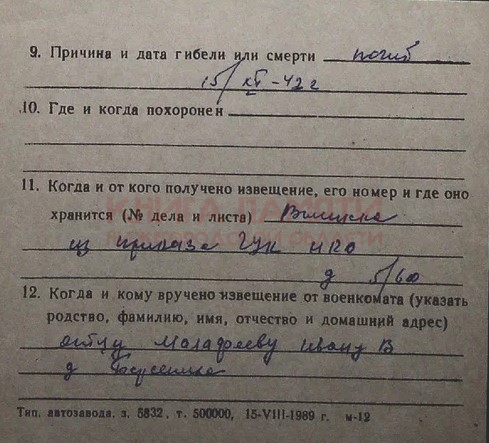 9. Причина и дата гибели или смерти погиб
15/XII-42 г
10. Где и когда похоронен
11. Когда и от кого получено извещение, его номер и где оно
хранится (№ дела и листа) Выписка
КНИГА ПАМЯТИ
из приказа ГУК НКО
д 5/60
12. Когда и кому вручено извещение от военкомата (указать
родство, фамилию, имя, отчество и домашний адрес)
отцу Малафееву Ивану В
д
Тип. автозавода. з. 5832, т. 500000, 15-VIII-1989 г. м-12